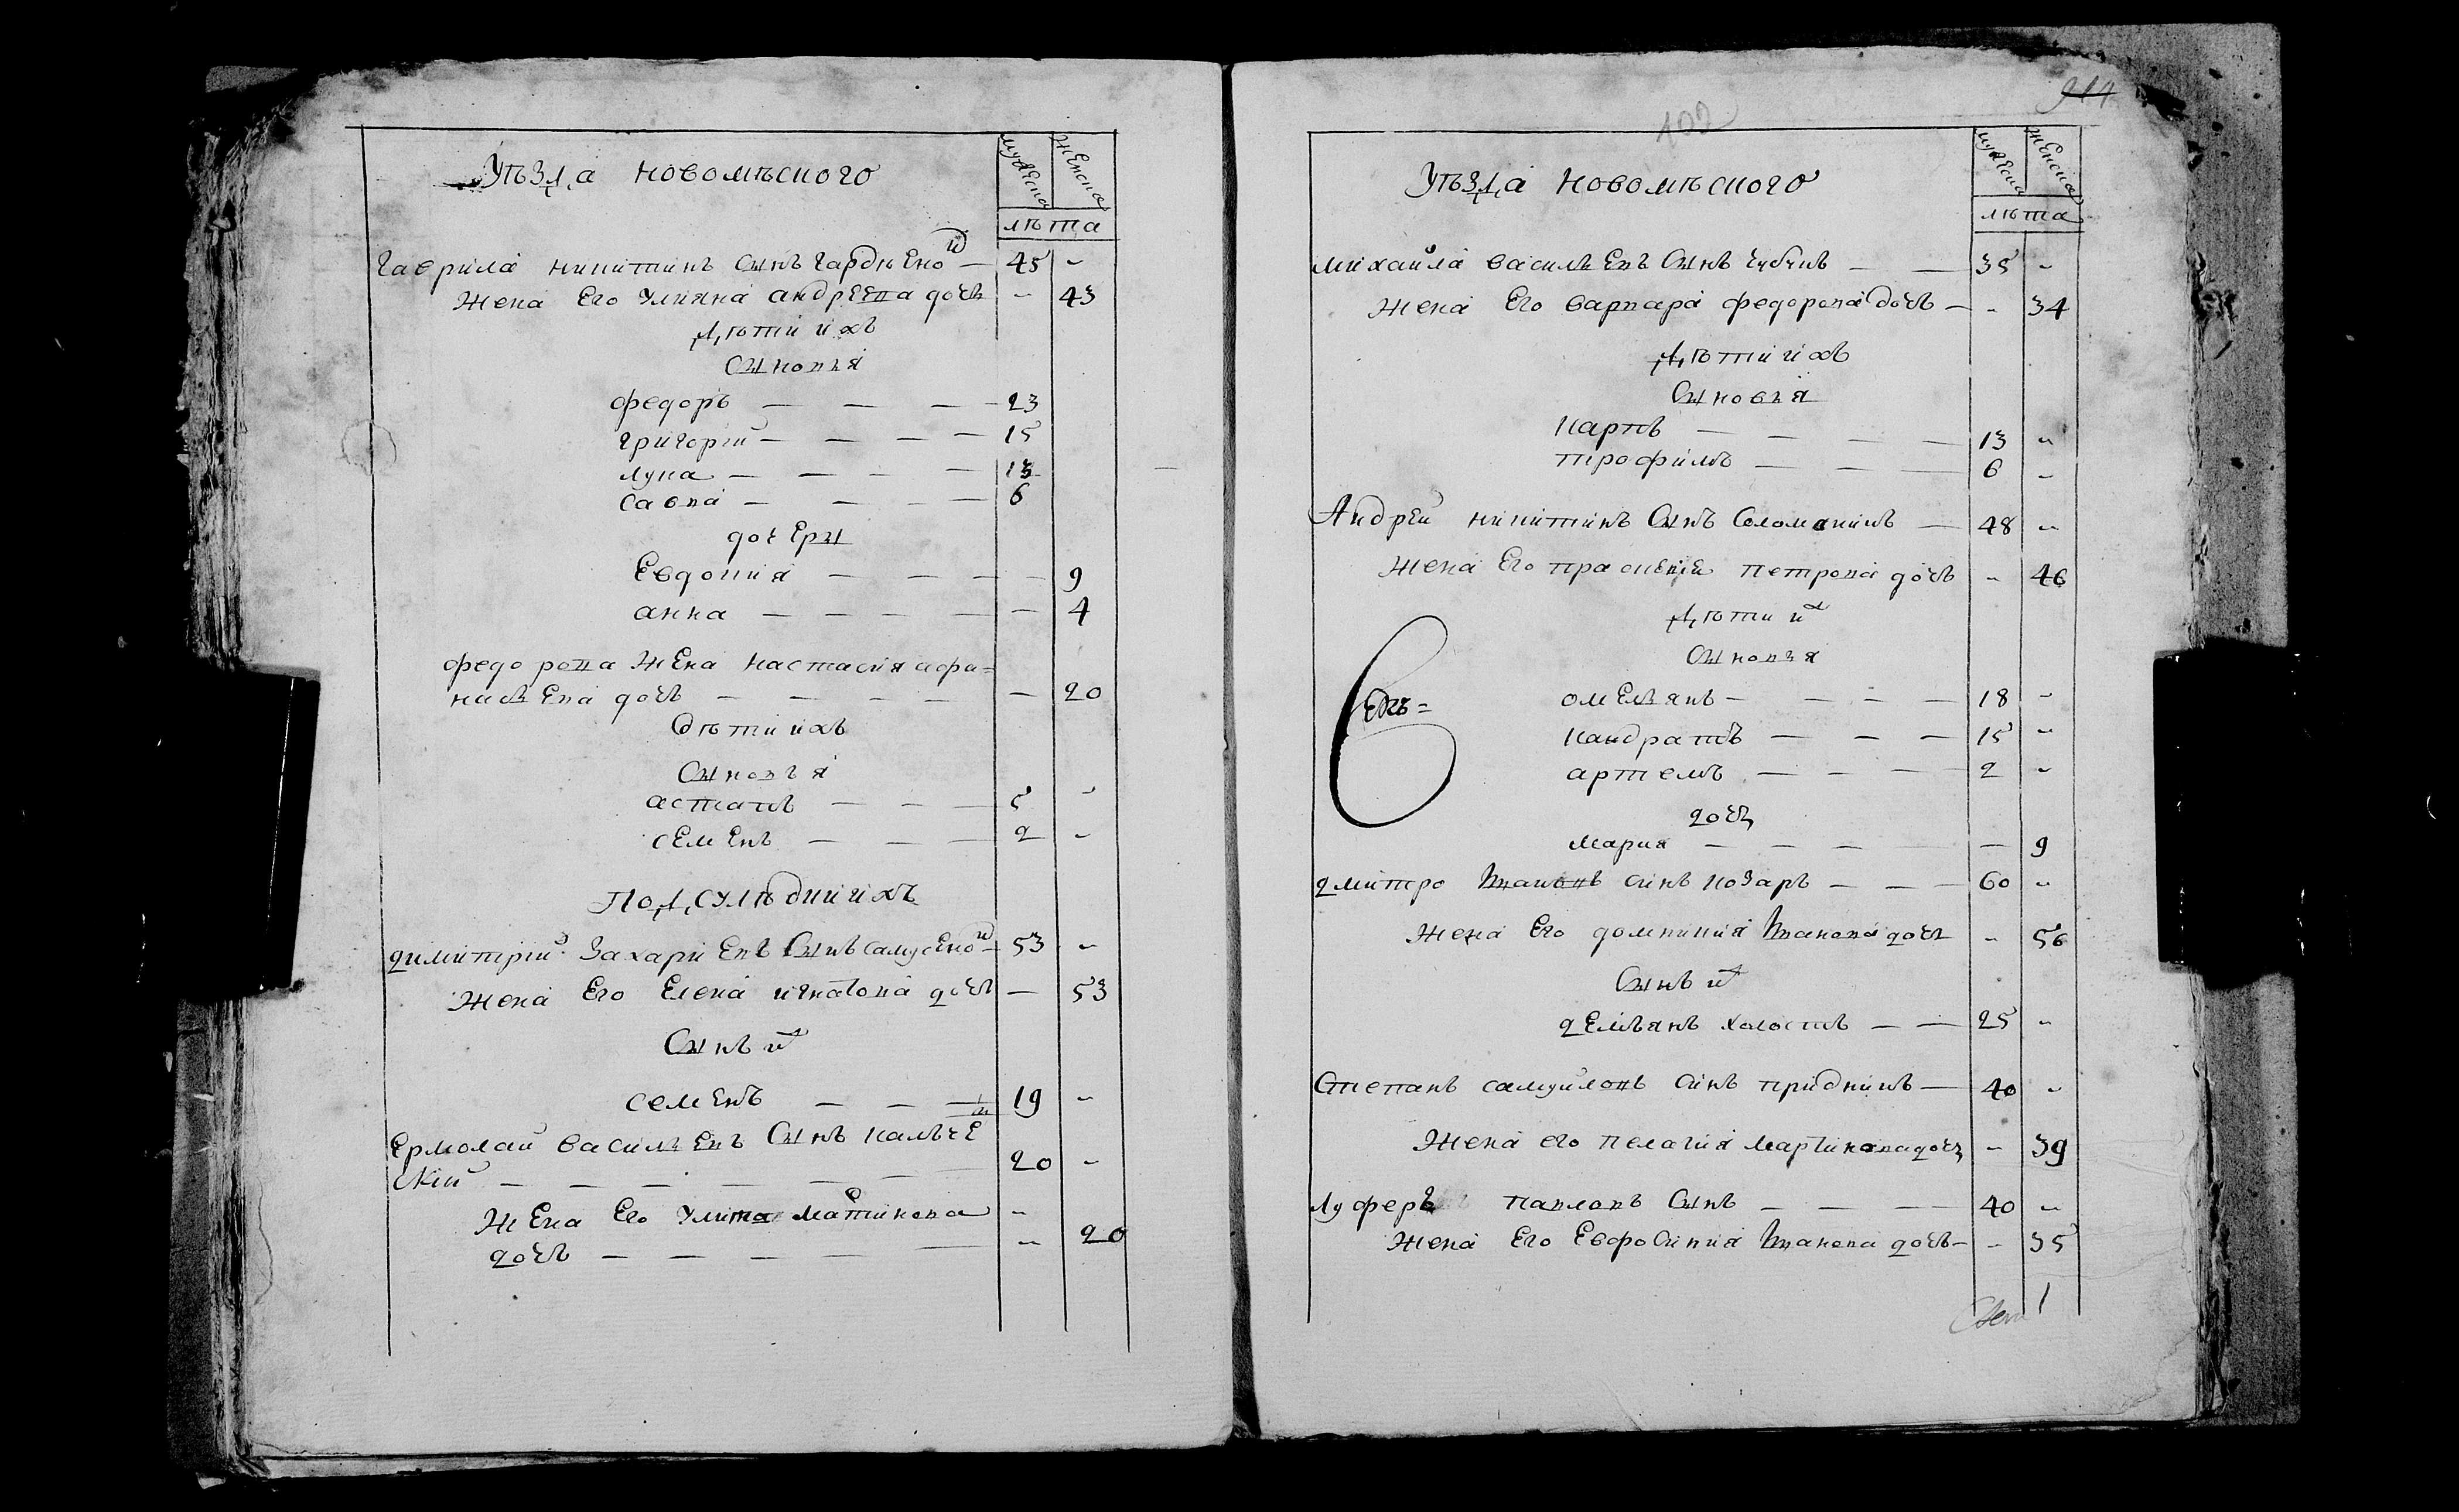 Уѣзда новомѣского
мужеска женска
лѣта
гаврила никитинъ сынъ гарднѣной — 45 -
жена его улияна андреева дочь - 43
дѣти ихъ
сыновья
федоръ — — — 23
григорій — — — — 15
лука — — — — 13
савва — — — — 6
дочери
Евдокия — — — — 9
анна — — — — — 4
федорова жена настасия афа=
насьева дочь — — — — — 20
дѣти ихъ
сыновья
астапъ — — — 5 -
семенъ — — — 2 -
Подсусѣдки ихъ
димитрій захариевъ сынъ самусеной — 53 -
жена его Елена игнатова дочь — 53
Сынъ их
семенъ — — — 19 -
Ермолай васильевъ сынъ кальче
скій — — — — — — 20 -
жена его улита мартинова -
дочь — — — — — - 20
102
Уѣзда новомѣского
мужеска женска
лѣта
михайла васильевъ сынъ чубукъ — — 35 -
жена его варвара федорова дочь — - 34
дѣти ихъ
Сыновья
карпъ — — — — 13 -
трофимъ — — — 6 -
Андрей никитинъ сынъ Соломакинъ — 48 -
жена его прасковія петрова дочь - 46
дѣти их
сыновья
омельянъ — — — — 18 -
кандратъ — — — 15 -
артемъ — — — 2 -
дочь
мария — — — — — 9
дмитро ивановъ синъ козаръ — — — 60 -
жена его домникия иванова дочь - 56
Сынъ их
демьянъ холостъ — — 25 -
Степанъ самуиловъ синъ придникъ — 40 -
жена его пелагия мартинова дочь - 39
Луферъ павловъ сынъ — — — 40 -
жена его Евфросиния иванова дочь — - 35